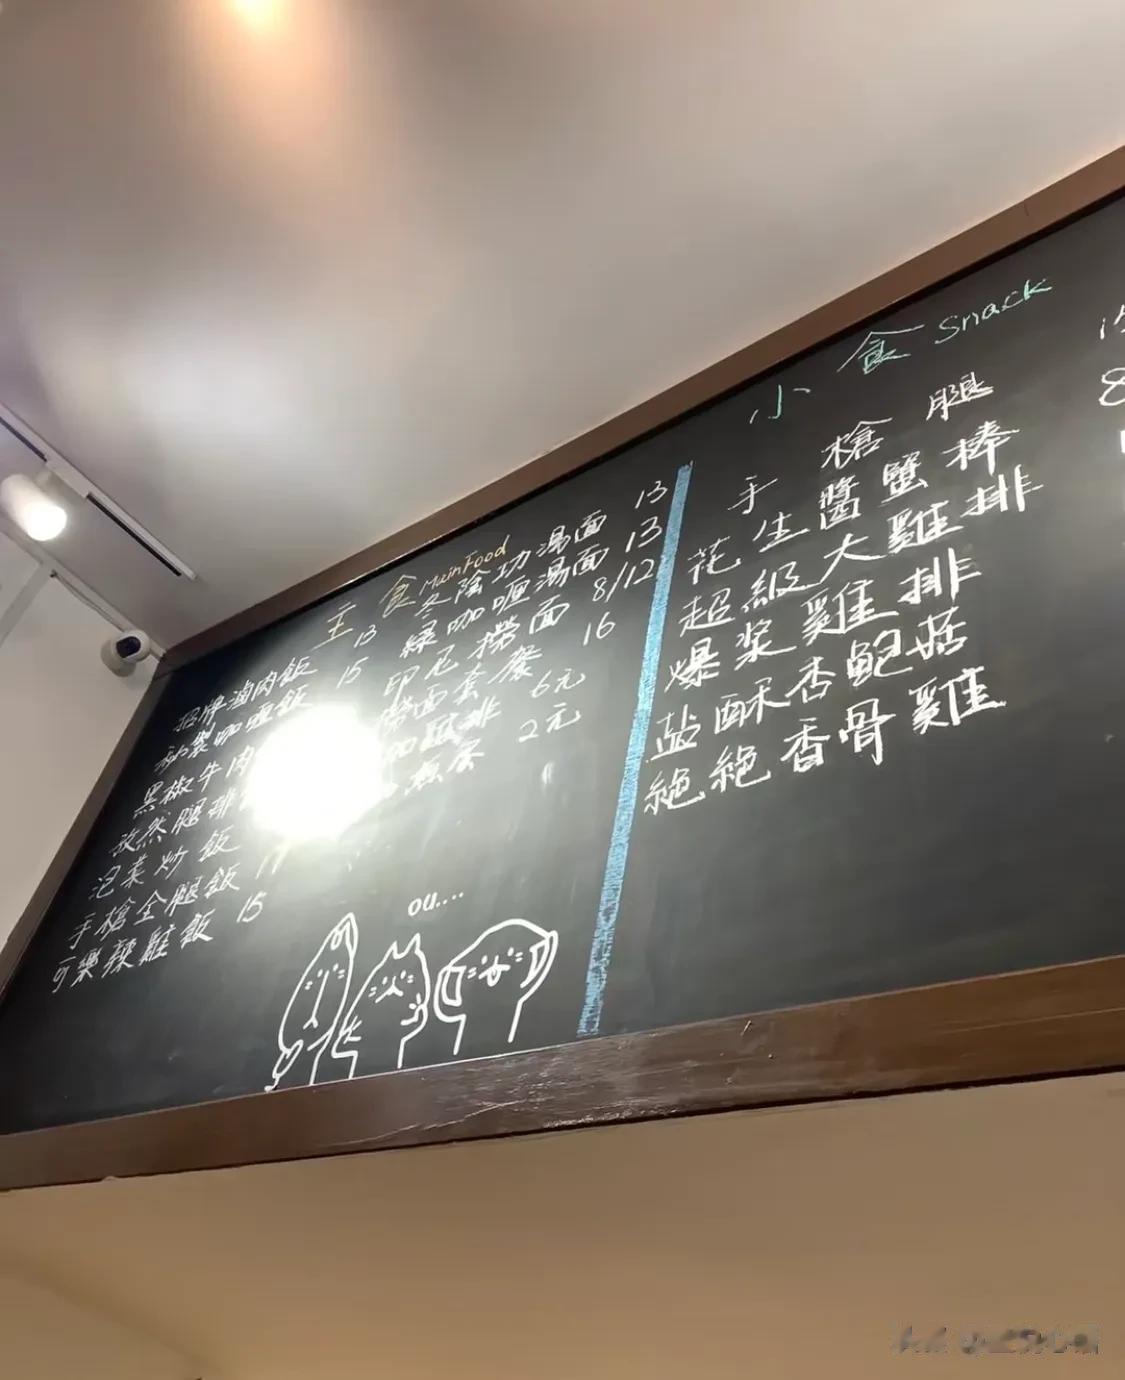 主食 MainFood
招牌滷肉飯 13
秘製咖喱飯 15
黑椒牛肉
孜然腿排
泡菜炒飯
手槍全腿飯
可樂辣雞飯 15
冬陰功湯面 13
綠咖喱湯面 13
印尼撈面 8/12
撈面套餐 16
加雞排 6元
2元
ou....
小食 Snack
手槍腿
花生醬蟹棒
超級大雞排
爆浆雞排
盐酥杏鮑菇
絕絕香骨雞
8